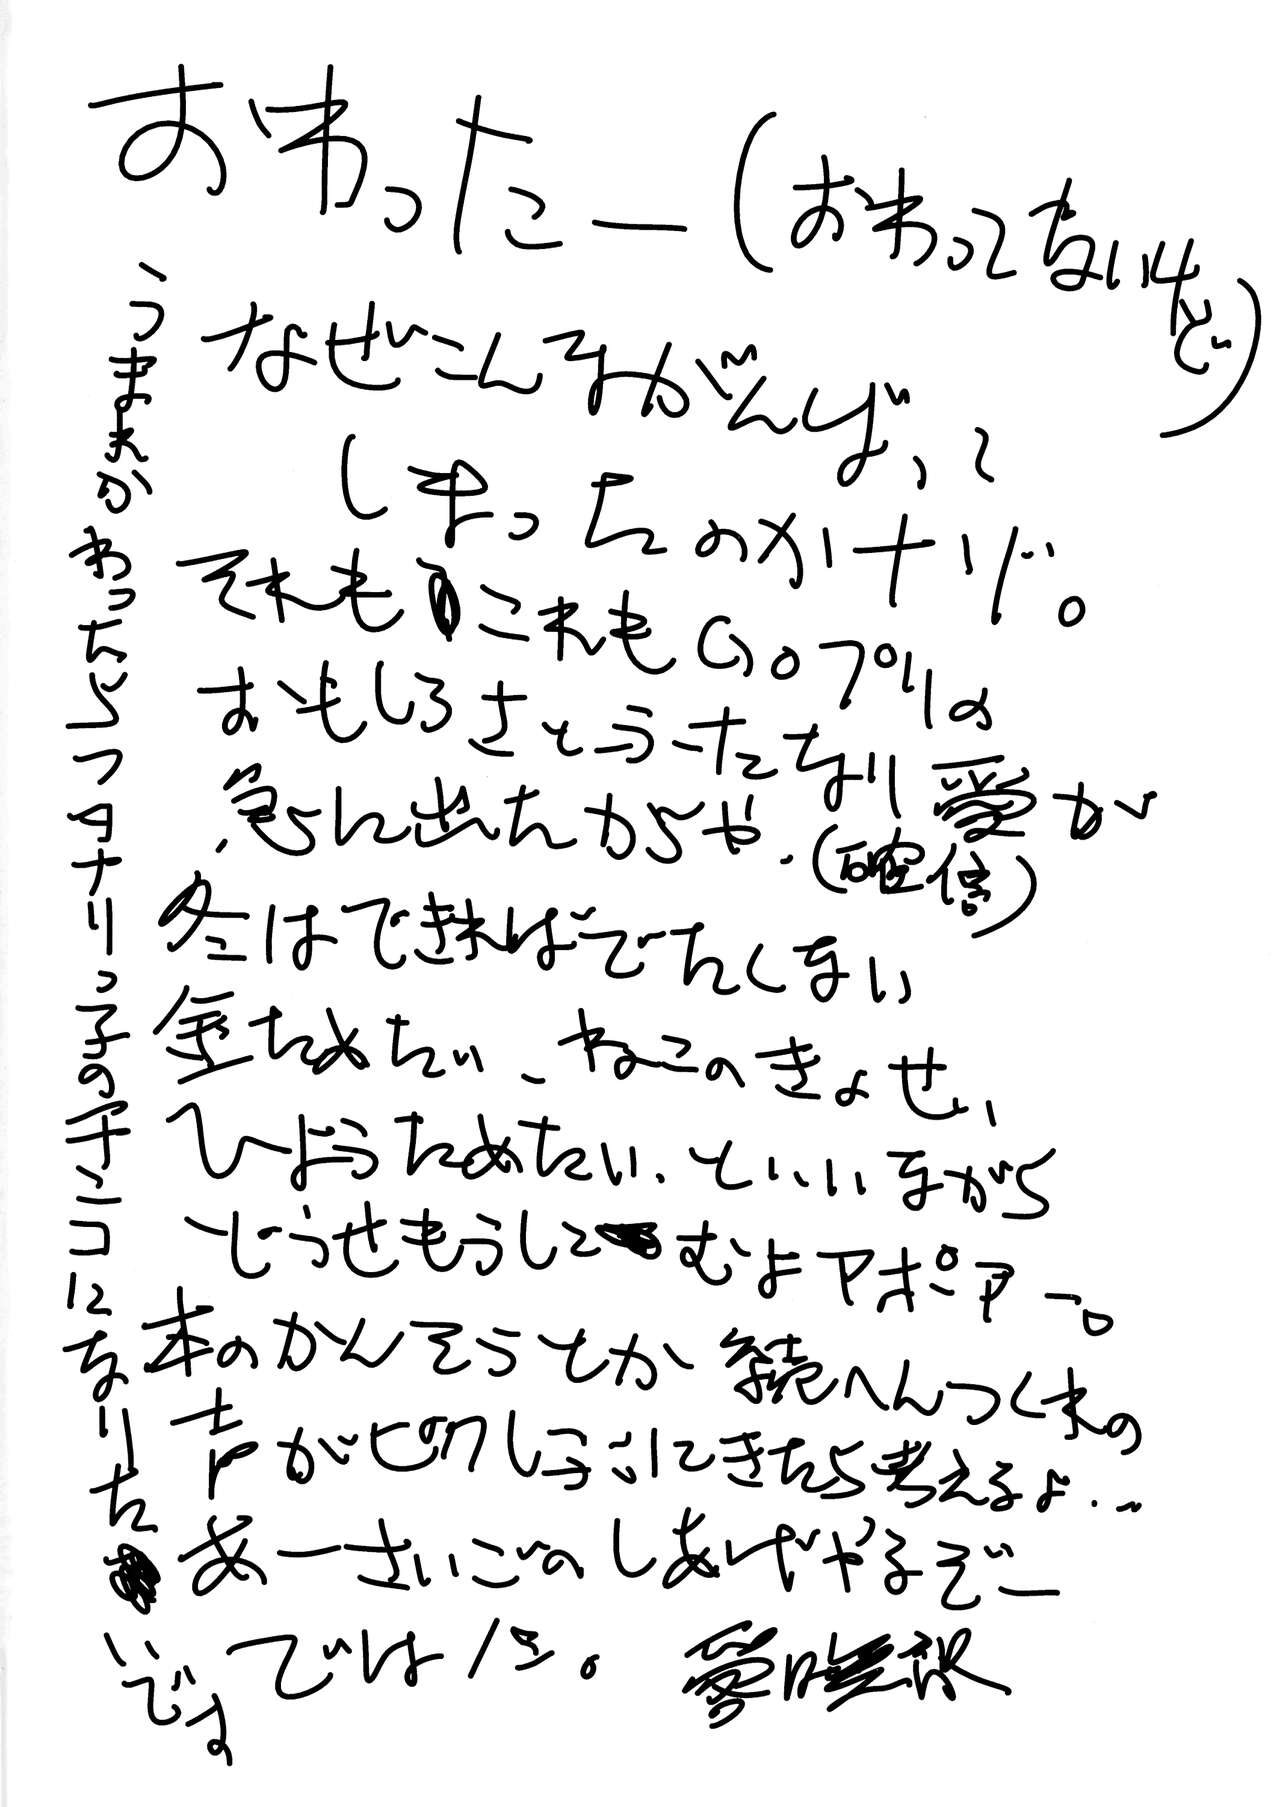 おわったー(おわってないけど)
なぜこんながんばって
しまったのかナゾ。
それもこれもGo プリの
おもしろさとうたなり愛が
出たからや.(確信)
冬はできればでたくない
金ためたい、ねこのきょせい
ひようためたい、といいながら
どうせもうしこむよアポアー。
本のかんそうとか続へんつくれの
声がピクしぶにきたら考えるよ…
あーさいごのしあげやるぞー
では
うまれかわったらフタナリっ子の
になりたいでよ